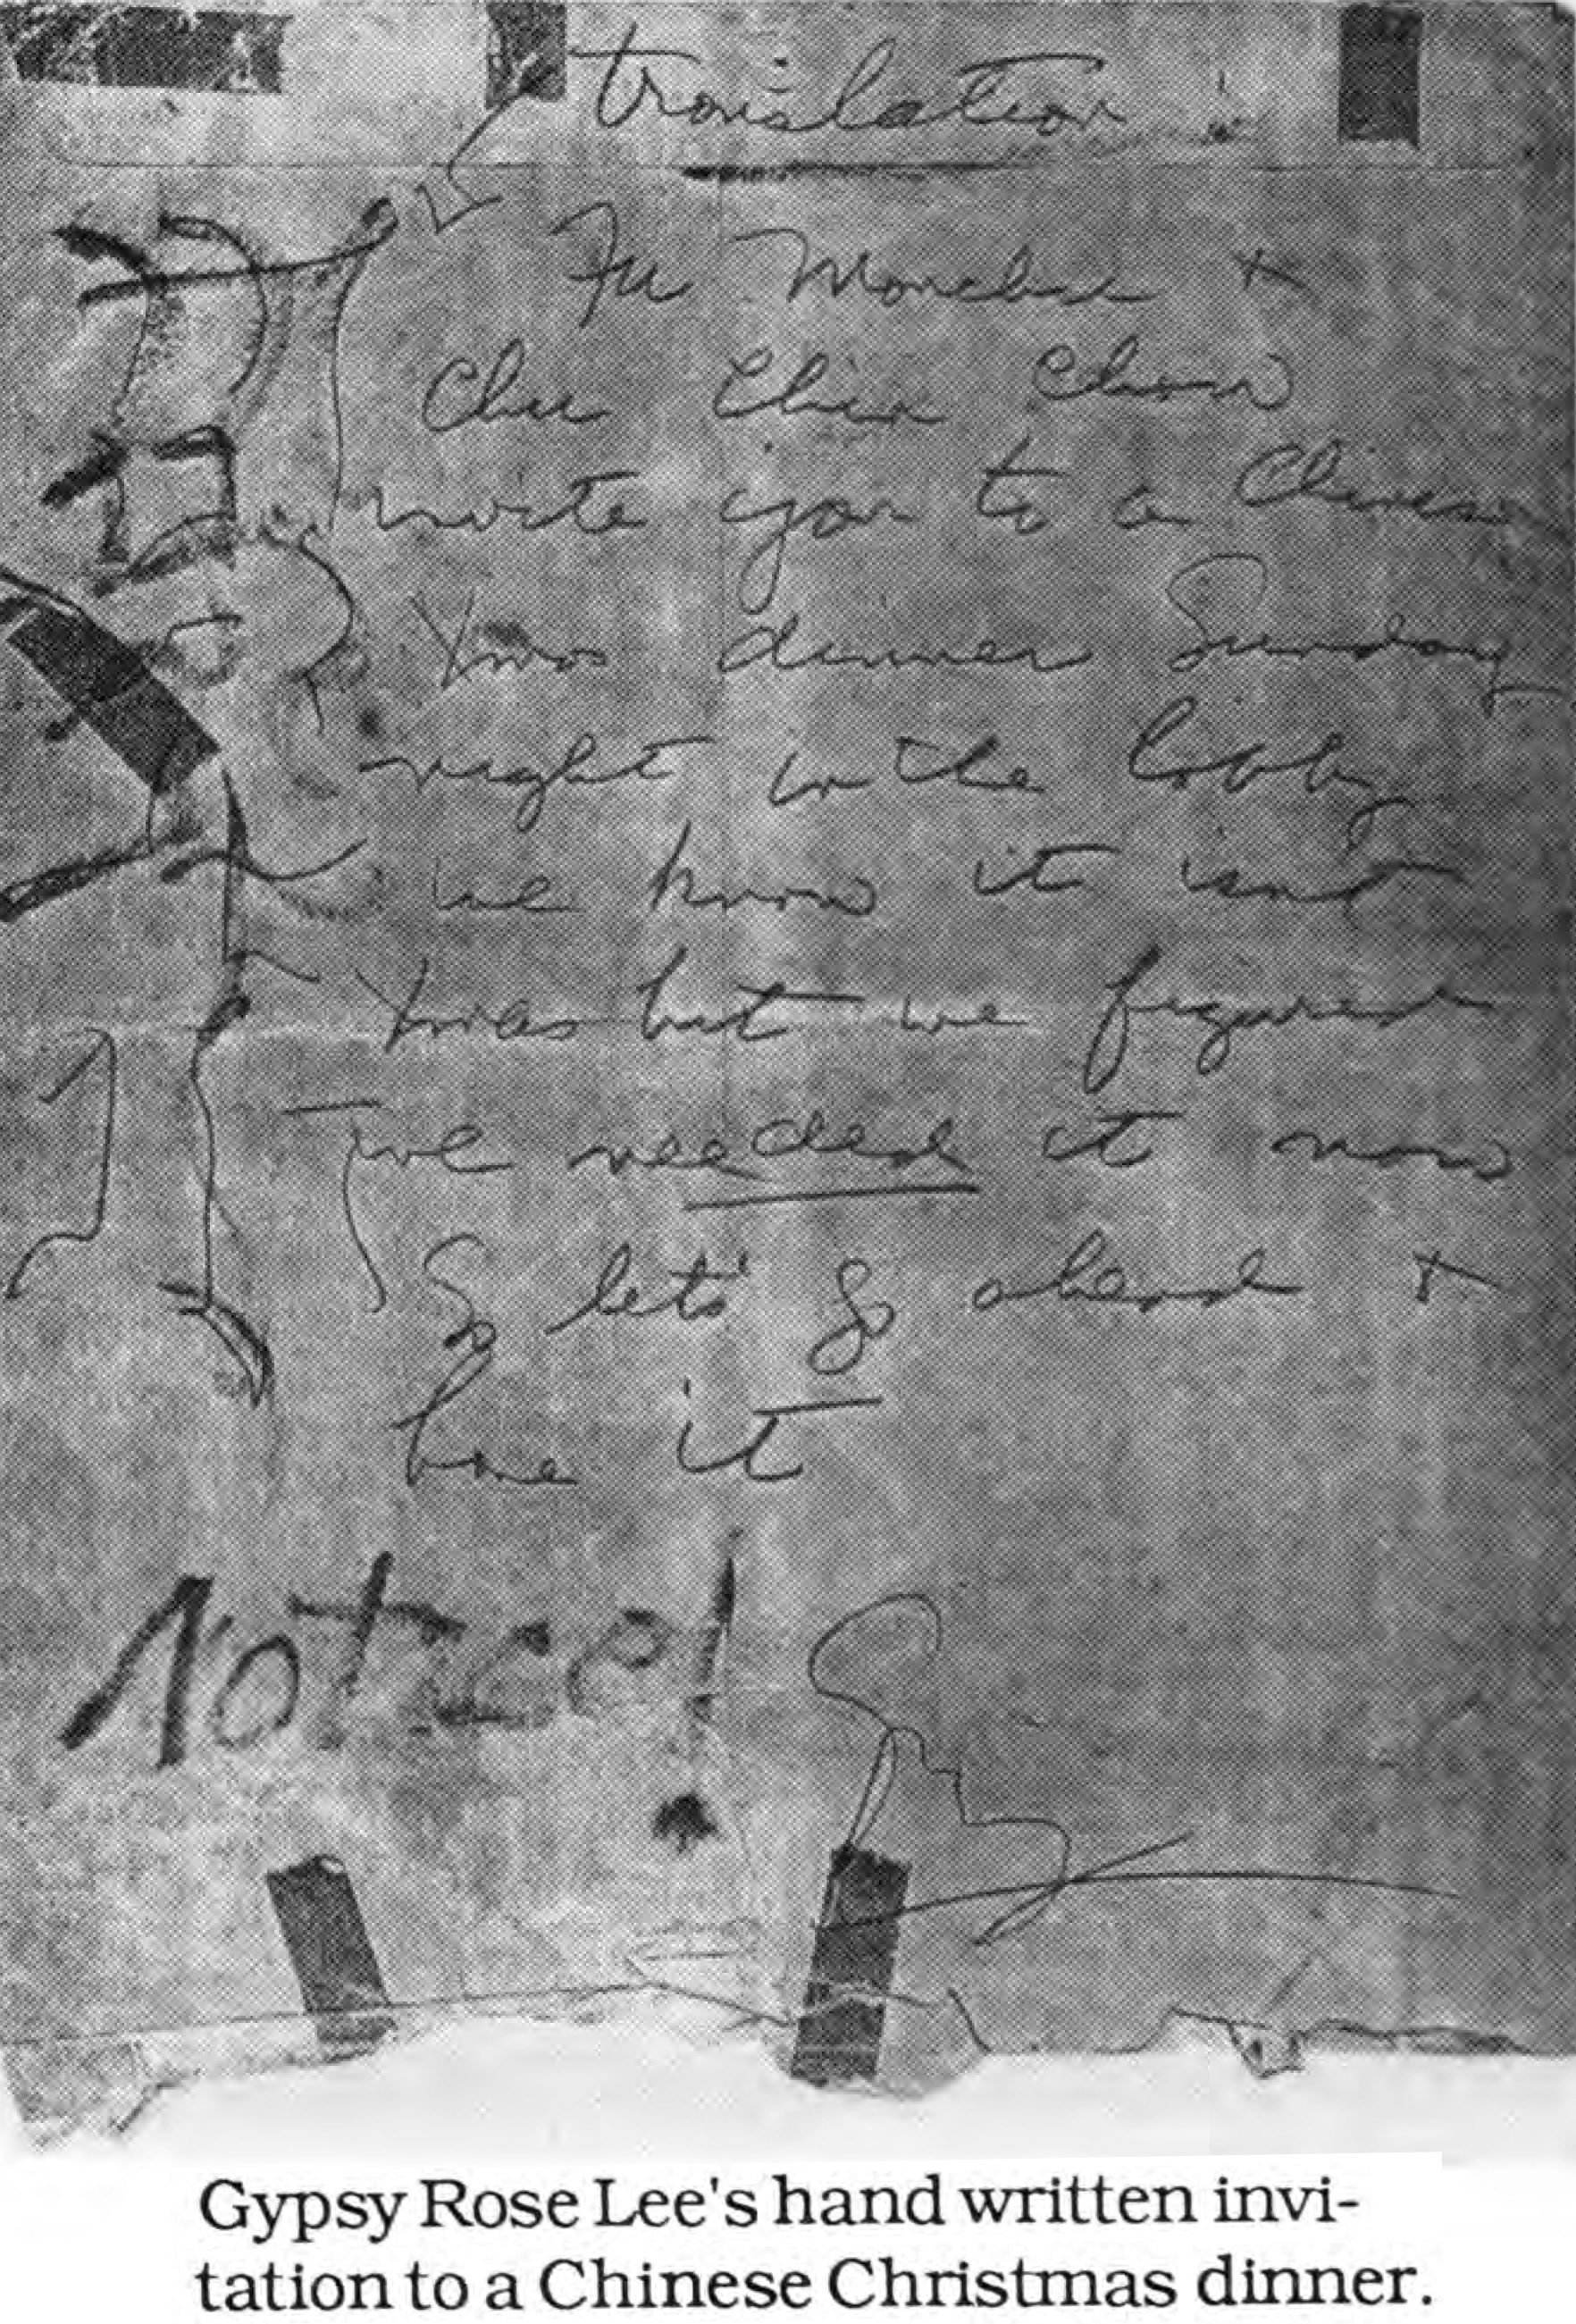 translation
Fu Manchu +
Chu Chin Chow
invite you to a Chinese
Xmas dinner Sunday
night in the lobby
we know it isnt
Xmas but we figured
we needed it now
So let's go ahead +
have it
Notice!
Gypsy Rose Lee's hand written invi-
tation to a Chinese Christmas dinner.